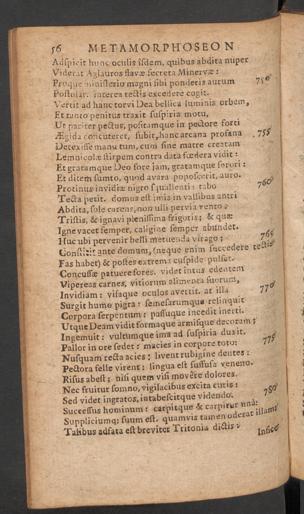 56 METAMORPHOSEON
Adspicit hunc oculis iisdem, quibus abdita nuper
Viderat Aglauros flavæ secreta Minervæ:
Proque ministerio magni sibi ponderis aurum 750
Postulat: interea tectis excedere cogit.
Vertit ad hanc torvi Dea bellica luminis orbem,
Et tanto penitus traxit suspiria motu,
Ut pariter pectus, positamque in pectore forti
Ægida concuteret, subit, hanc arcana profana 755
Detexisse manu tum, cum sine matre creatam
Lemnicolæ stirpem contra data fœdera vidit:
Et gratamque Deo fore jam, gratamque sorori:
Et ditem sumto, quod avara poposcerit, auro.
Protinus invidiæ nigro squallentia tabo 760
Tecta petit. domus est imis in vallibus antri
Abdita, sole carens, non ulli pervia vento;
Tristis, & ignavi plenissima frigoris; & quæ
Igne vacet semper, caligine semper abundet.
Huc ubi pervenit belli metuenda virago; 765
Constitit ante domum, (neque enim succedere tectis
Fas habet) & postes extrema cuspide pulsat.
Concussæ patuere fores. videt intus edentem
Vipereas carnes, vitiorum alimenta suorum,
Invidiam: visaque oculos avertit. at illa 770
Surgit humo pigra: semesarumque relinquit
Corpora serpentum; passuque incedit inerti.
Utque Deam vidit formaque armisque decoram;
Ingemuit: vultumque ima ad suspiria duxit.
Pallor in ore sedet: macies in corpore toto: 775
Nusquam recta acies; livent rubigine dentes:
Pectora felle virent: lingua est suffusa veneno.
Risus abest; nisi quem visi movere dolores.
Nec fruitur somno, vigilacibus excita curis:
Sed videt ingratos, intabescitque videndo. 780
Successus hominum: carpitque & carpitur una:
Suppliciumque suum est. quamvis tamen oderat illam:
Talibus adfata est breviter Tritonia dictis:
Infice